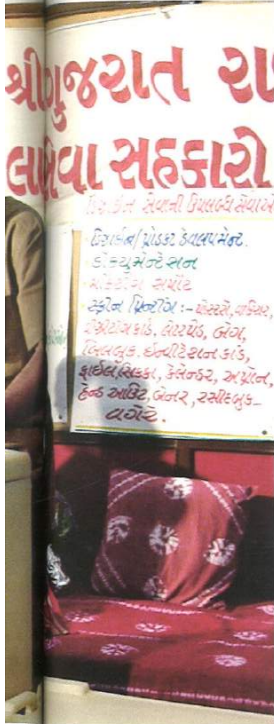 શ્રી ગુજરાત રા
સહકારી
ડિઝાઈન સેવાની ઉપલબ્ધ સેવાઓ
ડિઝાઈન/પ્રોડક્ટ ડેવલપમેન્ટ.
ડોક્યુમેન્ટેસન
માર્કેટીંગ સપોર્ટ
સ્ક્રીન પ્રિન્ટીંગ :- પોસ્ટરો,
વિઝીટીંગ કાર્ડ, લેટરપેડ, બેગ,
બિલબુક, ઈન્વીટેશન કાર્ડ,
ફાઈલ, સિક્કા, કેલેન્ડર, એપ્રોન,
હેન્ડ આર્ટિ, બેનર, રસીદબુક-
વગેરે.